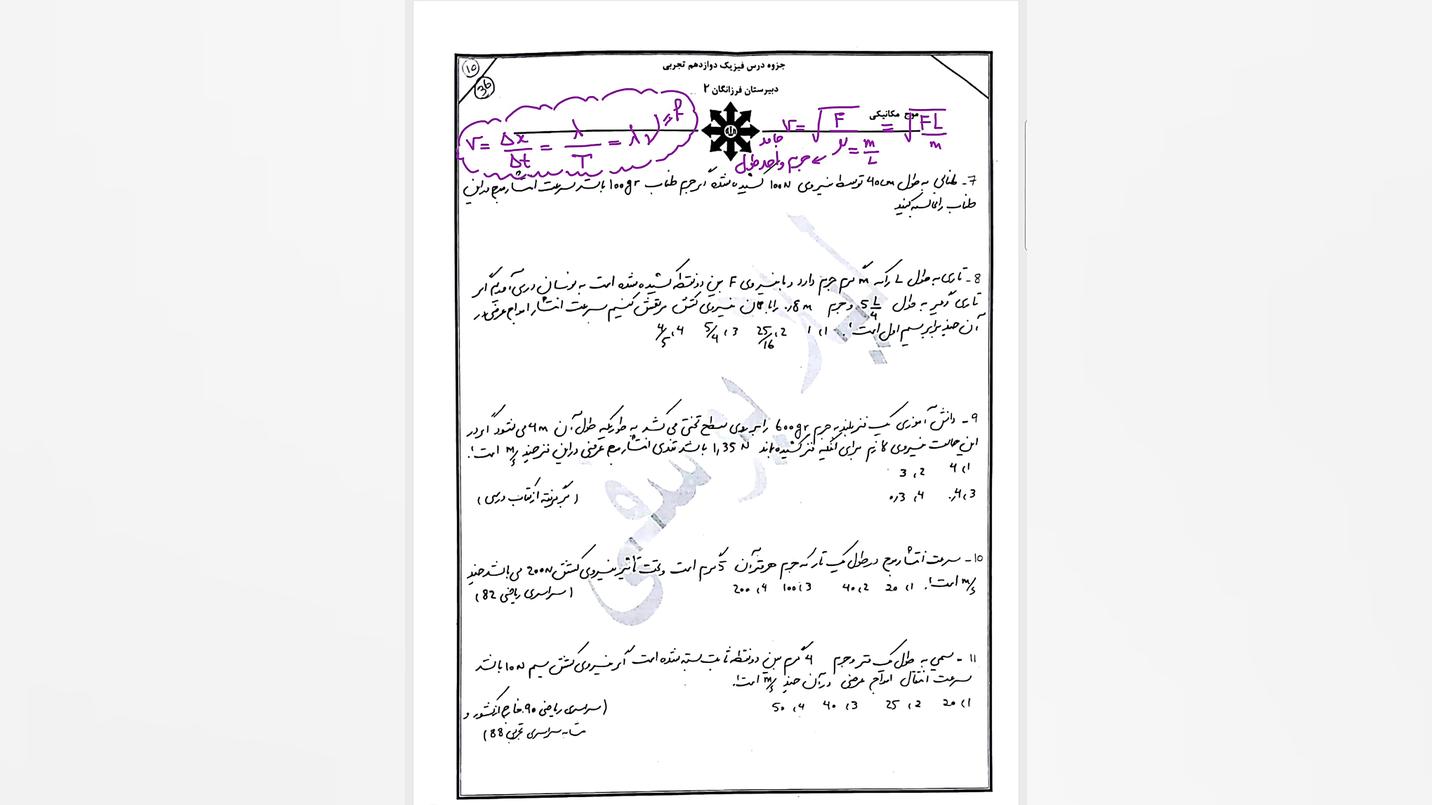 جزوه درس فیزیک دوازدهم تجربی
۱۵
36
دبیرستان فرزانگان ۲
موج مکانیکی
V = Δx/Δt = λ/T = λν = f
V = √(F/μ) = √(FL/m)
μ = m/L
جامد
جرم واحد طول
7- طنابی به طول 40cm توسط نیروی 100N کشیده شده اگر جرم طناب 100gr باشد سرعت انتشار موج در این
طناب را محاسبه کنید
8- تاری به طول L را که m گرم جرم دارد و با نیروی F بین دو نقطه کشیده شده است به نوسان در می‌آوریم اگر
تاری دیگر به طول 5L/4 و جرم 0,8m را با همان نیروی کشش مرتعش کنیم سرعت انتشار امواج عرضی در
آن چند برابر سیم اول است؟ 1) 1 2) 25/16 3) 5/4 4) 4/5
9- دانش آموزی یک فنر بلند به جرم 600gr را بر روی سطح تختی می کشد به طوریکه طول آن 4m می شود اگر در
این حالت نیروی لازم برای آنکه فنر کشیده بماند 1,35N باشد تندی انتشار موج عرضی در این فنر چند m/s است؟
1) 4 2) 3
3) 0,4 4) 0,3
(برگرفته از کتاب درسی)
10- سرعت انتشار موج در طول یک تار که جرم هر متر آن 5 گرم است و تحت تأثیر نیروی کشش 200N می باشد چند
m/s است؟ 1) 20 2) 40 3) 100 4) 200
(سراسری ریاضی 82)
11- سیمی به طول یک متر و جرم 4 گرم بین دو نقطه ثابت بسته شده است اگر نیروی کشش سیم 10N باشد
سرعت انتقال امواج عرضی در آن چند m/s است؟
1) 20 2) 25 3) 40 4) 50
(سراسری ریاضی 90 خارج از کشور و
مشابه سراسری تجربی 88)